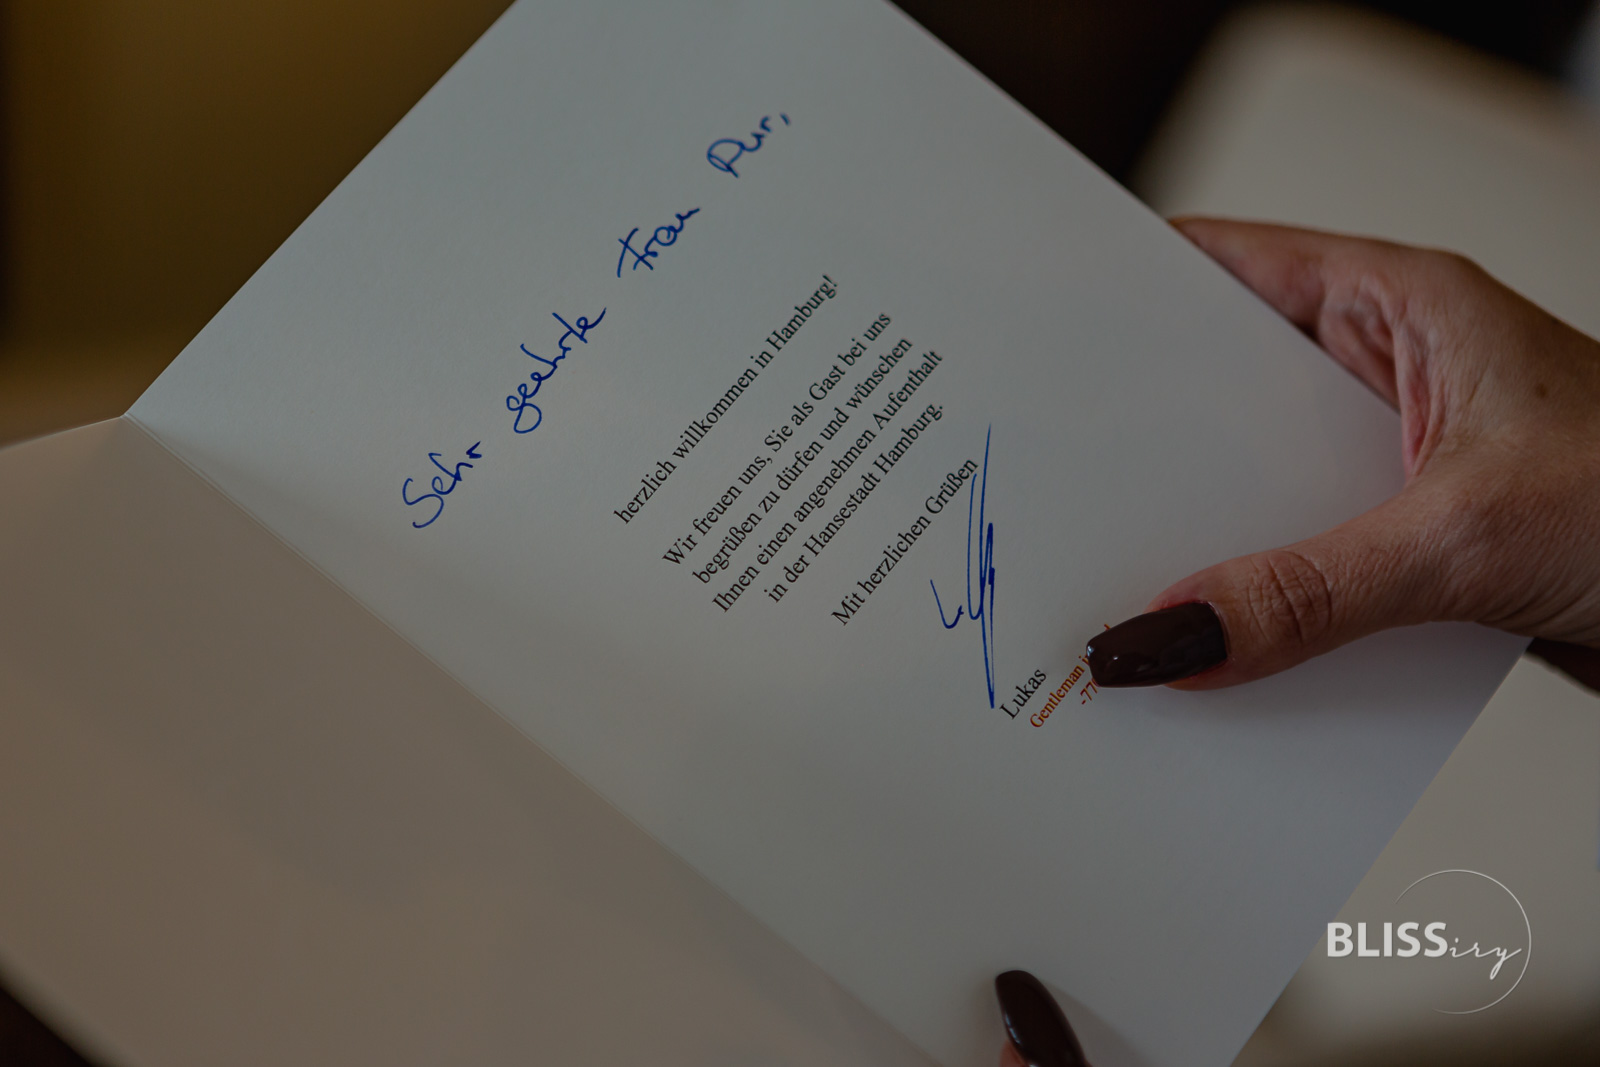 Sehr geehrte Frau Pur,
herzlich willkommen in Hamburg!
Wir freuen uns, Sie als Gast bei uns
begrüßen zu dürfen und wünschen
Ihnen einen angenehmen Aufenthalt
in der Hansestadt Hamburg.
Mit herzlichen Grüßen
Lukas
Gentleman
BLISSiry